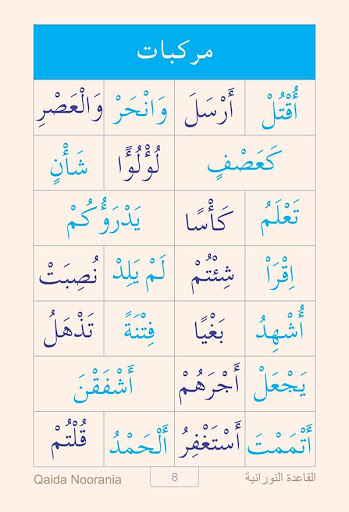 مركبات
أُقْتُلْ أَرْسَلَ وَانْحَرْ وَالْعَصْرِ
كَعَصْفٍ لُؤْلُؤًا شَأْنٍ
تَعْلَمُ كَأْسًا يَذْرَؤُكُمْ
اِقْرَاْ شِئْتُمْ لَمْ يَلِدْ نُصِبَتْ
أُشْهِدُ بَغْيًا فِتْنَةً تَذْهَلُ
يَجْعَلْ أَجْرَهُمْ أَشْفَقْنَ
أَتْمَمْتَ أَسْتَغْفِرُ أَلْحَمْدُ قُلْتُمْ
القاعدة النورانية 8 Qaida Noorania